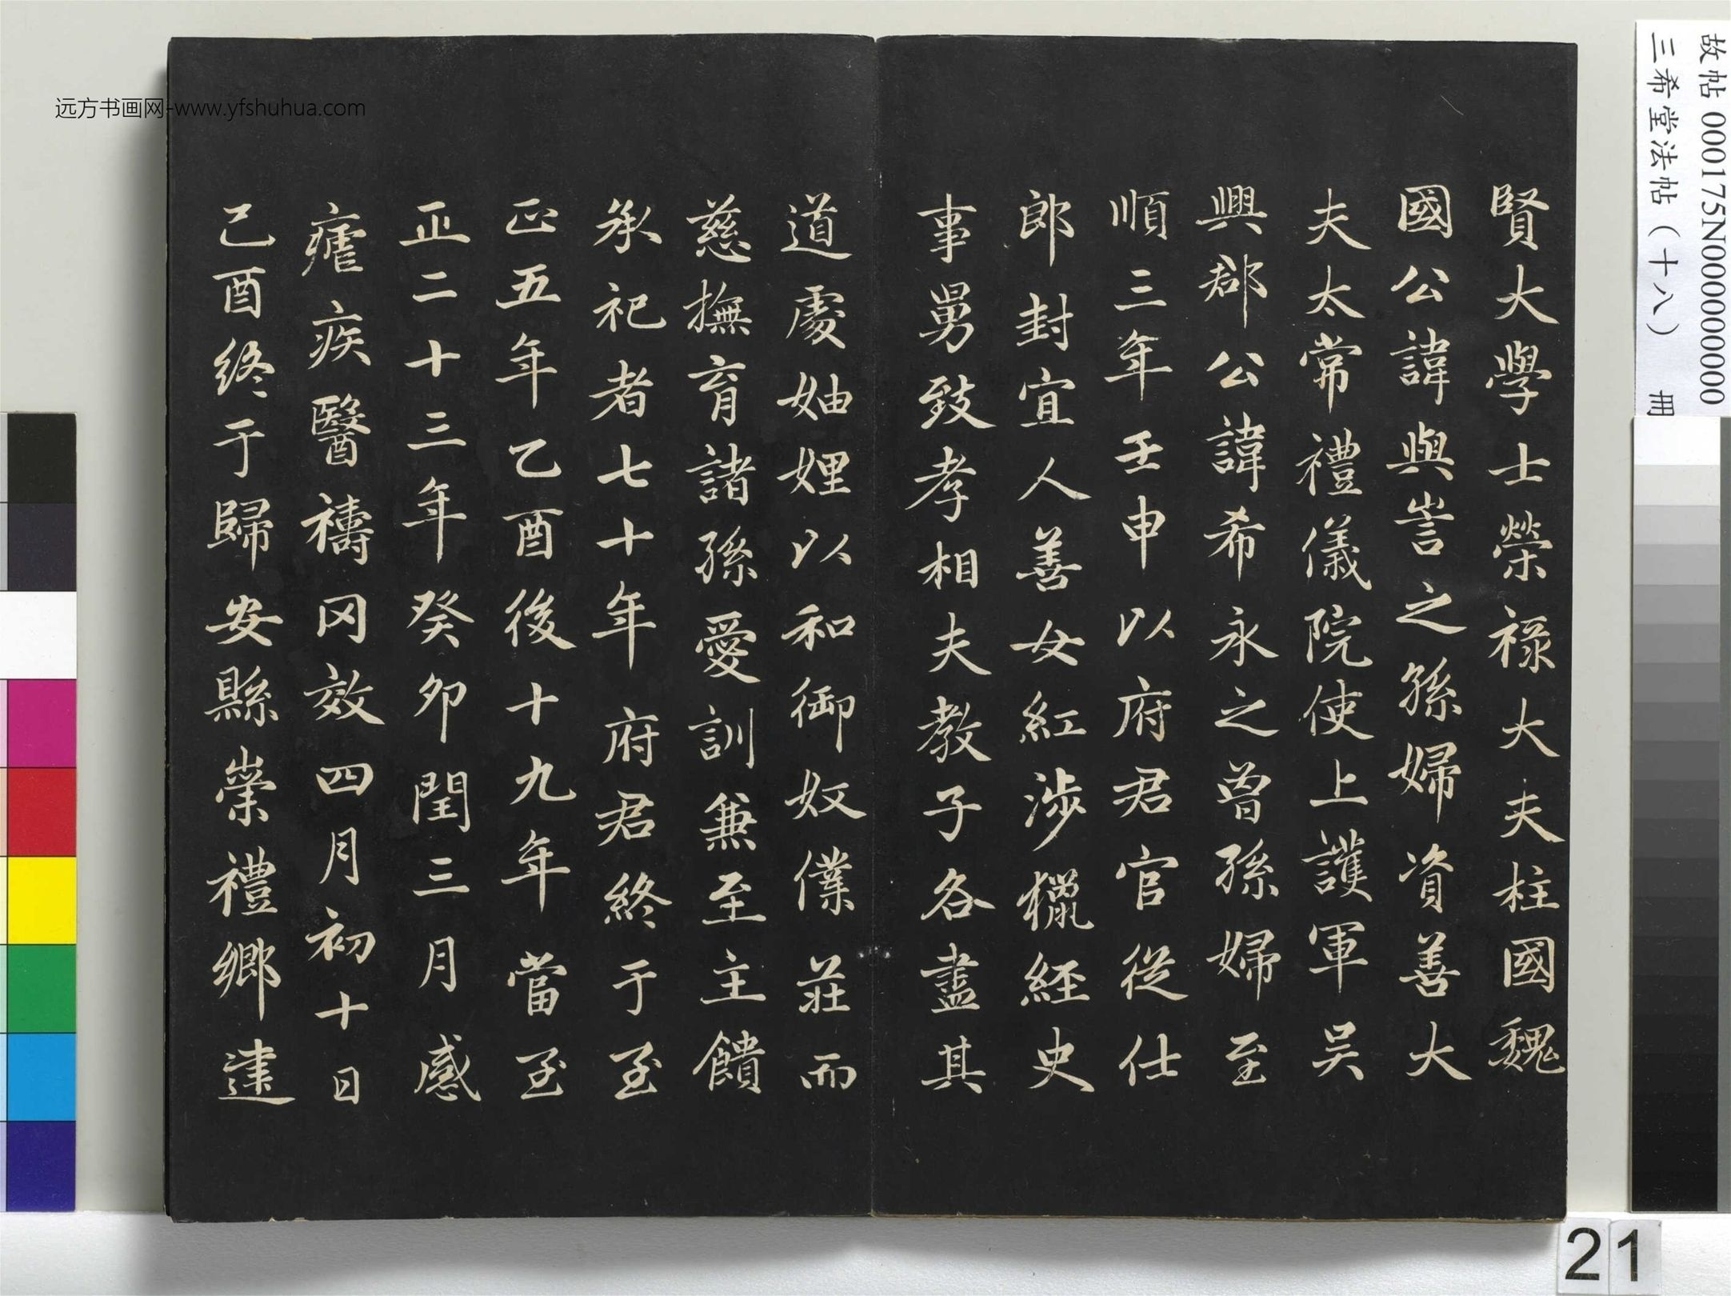 賢大學士榮祿大夫柱國魏
國公諱與訔之孫婦資善大
夫太常禮儀院使上護軍吳
興郡公諱希永之曾孫婦至
順三年壬申以府君官從仕
郎封宜人善女紅涉獵經史
事舅致孝相夫教子各盡其
道處妯娌以和御奴僕莊而
慈撫育諸孫愛訓兼至主饋
承祀者七十年府君終于至
正五年乙酉後十九年當至
正二十三年癸卯閏三月感
瘧疾醫禱罔效四月初十日
己酉終于歸安縣崇禮鄉建
故帖 000175N000000000
三希堂法帖（十八） 冊
远方书画网-www.yfshuhua.com
21